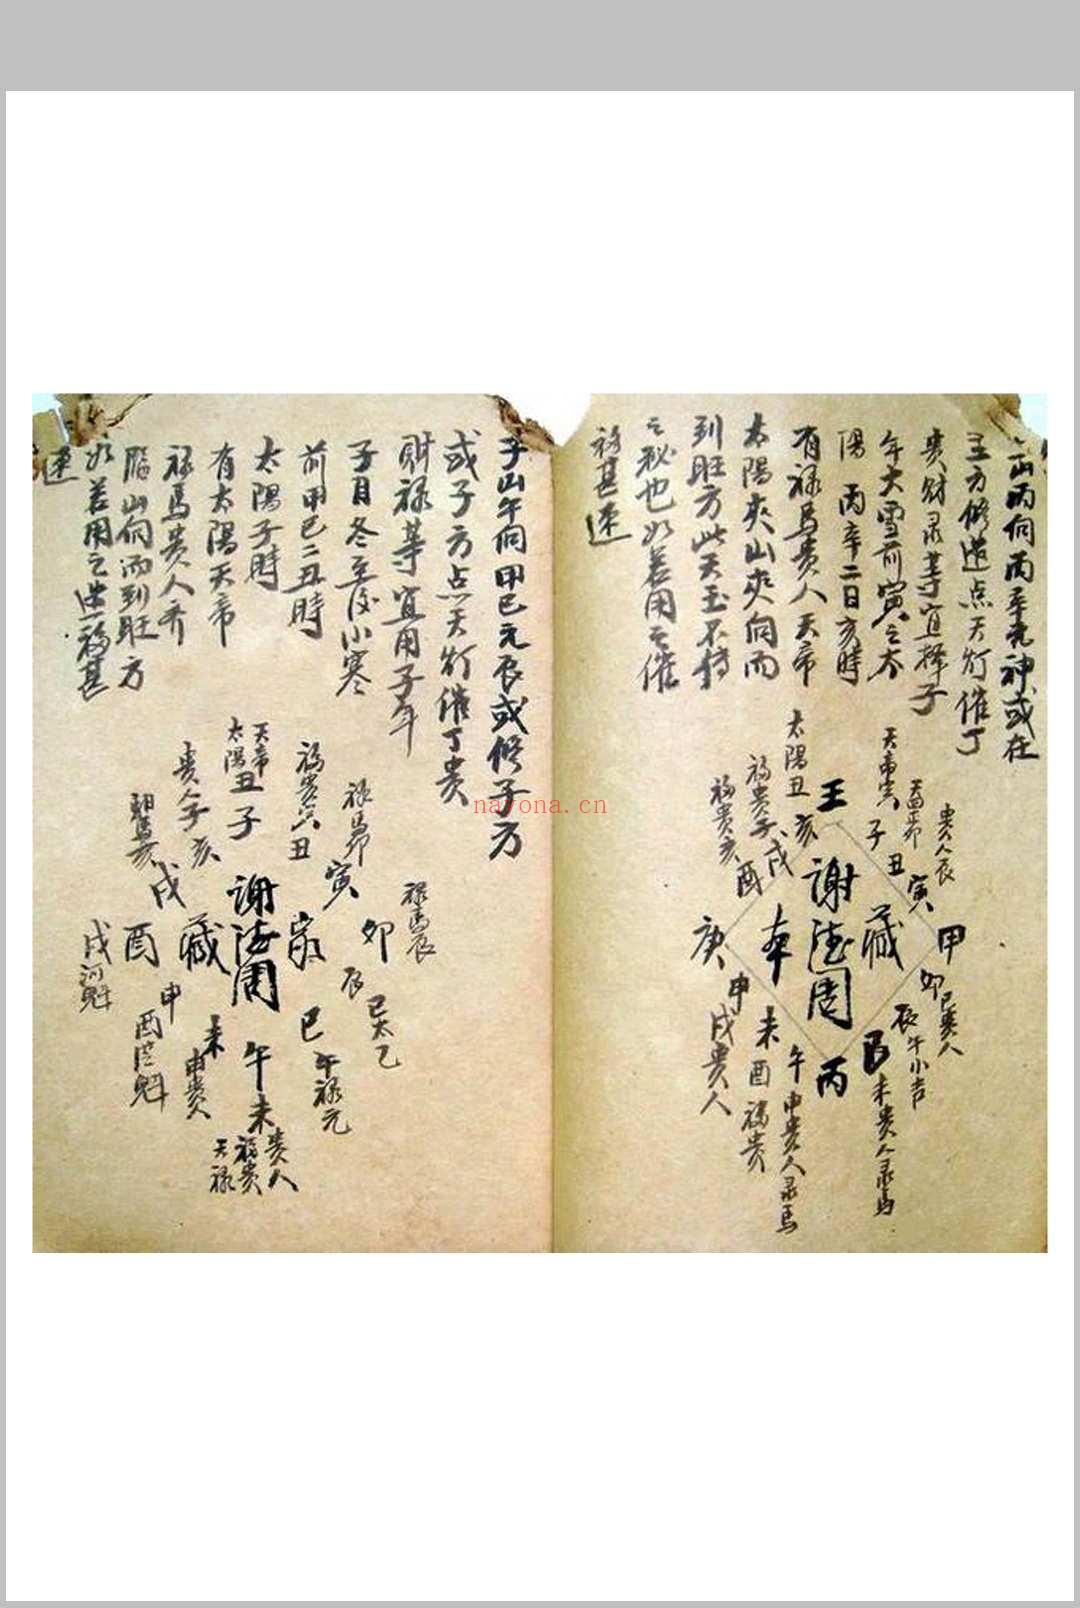 山丙向丙辛元神或在
壬方修造点天灯催丁
贵财录等宜择子
年大雪前寅之太
陽丙辛二日亥時
有禄馬贵人天帝
太陽夾山夾向而
到旺方此天玉不傳
之秘也如若用之催
福甚速
壬
子
丑
寅
甲
卯
辰
巳
丙
午
未
申
庚
酉
戌
亥
謝海周
藏
本
天帝寅
贵人辰
巳贵人
午小吉
未贵人录馬
申贵人录馬
酉福贵
戌贵人
福贵亥
福贵子
太陽丑
子山午向甲己元辰或修子方
或子方点天灯催丁贵
財禄等宜用子年
子月冬至后小寒
前甲己二丑時
太陽子時
有太陽天帝
禄馬贵人齐
臨山向而到旺方
如若用之造福甚
速
天帝
太陽丑
福贵寅
禄馬卯
禄馬辰
巳太乙
午禄元
未
贵人
福贵
天禄
申贵人
酉
魁
戌河魁
贵人子
子
丑
寅
卯
辰
巳
午
未
申
酉
戌
亥
謝海周
家
藏
nayona.cn